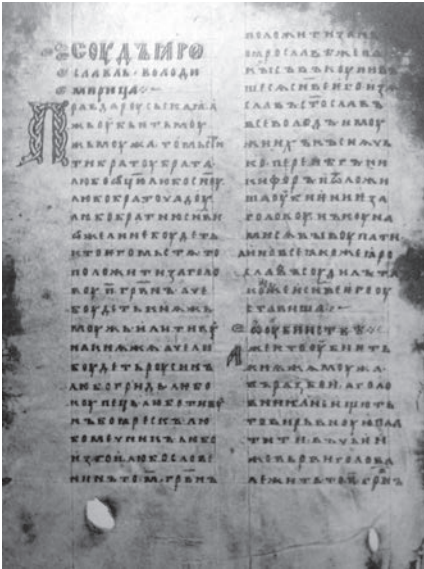 СОУДЪ ꙖРО
СЛАВЛЬ · ВОЛОДИ
МИРИЦА
Правда роусьскаꙗ · а
жь оубьѥть моу
жь моужа · то мьстї
ти братоу брата ·
любо ѡц҃ю любо сн҃оу ·
либо братоу чадоу ·
любо братню сн҃ви
ѡже ли не боудеть
кто ѥго мьстѧ то
положити за голо
воу · п҃ · грв҃нъ · аче
боудеть кнѧжь
моужь или тивоу
на кнѧжа · аче ли
боудеть роусинъ
любо гридь любо
коупець любо тивоу
нъ боꙗрескъ лю
бо мечникъ любо
изгои · любо слове
нинъ то · м҃ · грв҃нъ
положити за нь
по ꙗрославѣ же па
кы съвъкоупивъ
шесѧ сн҃ве ѥго изѧ
славъ ст҃ославъ
всеволодъ и моу
жи ихъ къснѧчь
ко перенѣгъ ни
кифоръ и ѿложи
ша оубиѥниѥ за
головоу нъ коуна
ми сѧ выкоупати
а ино все ꙗкоже ꙗро
славъ соудилъ та
коже и сн҃ве ѥго оу
ставиша
Ѡ оубииствѣ
Аже кто оубиѥть
кнѧжа моужа
въ разбои · а голо
вника не ищють
то вирьвноую пла
тити · въ чьѥи
же вьрви голова
лежить то п҃ грв҃нъ